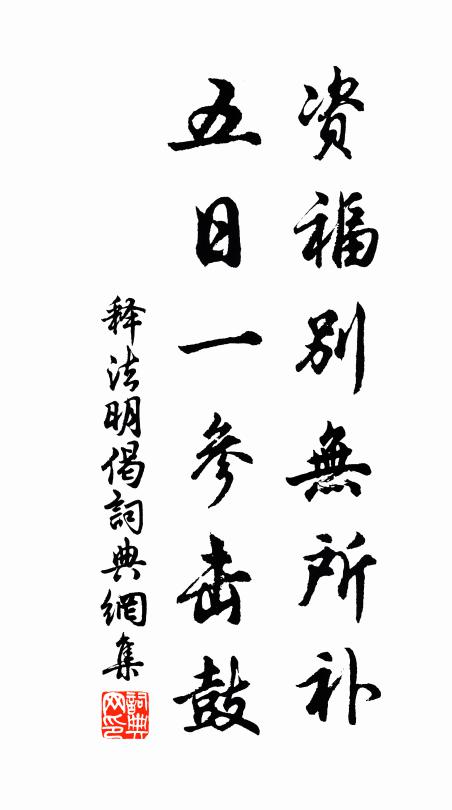 资福别無所补
五日一参击鼓
释法明偈詞典網集
詞典网印